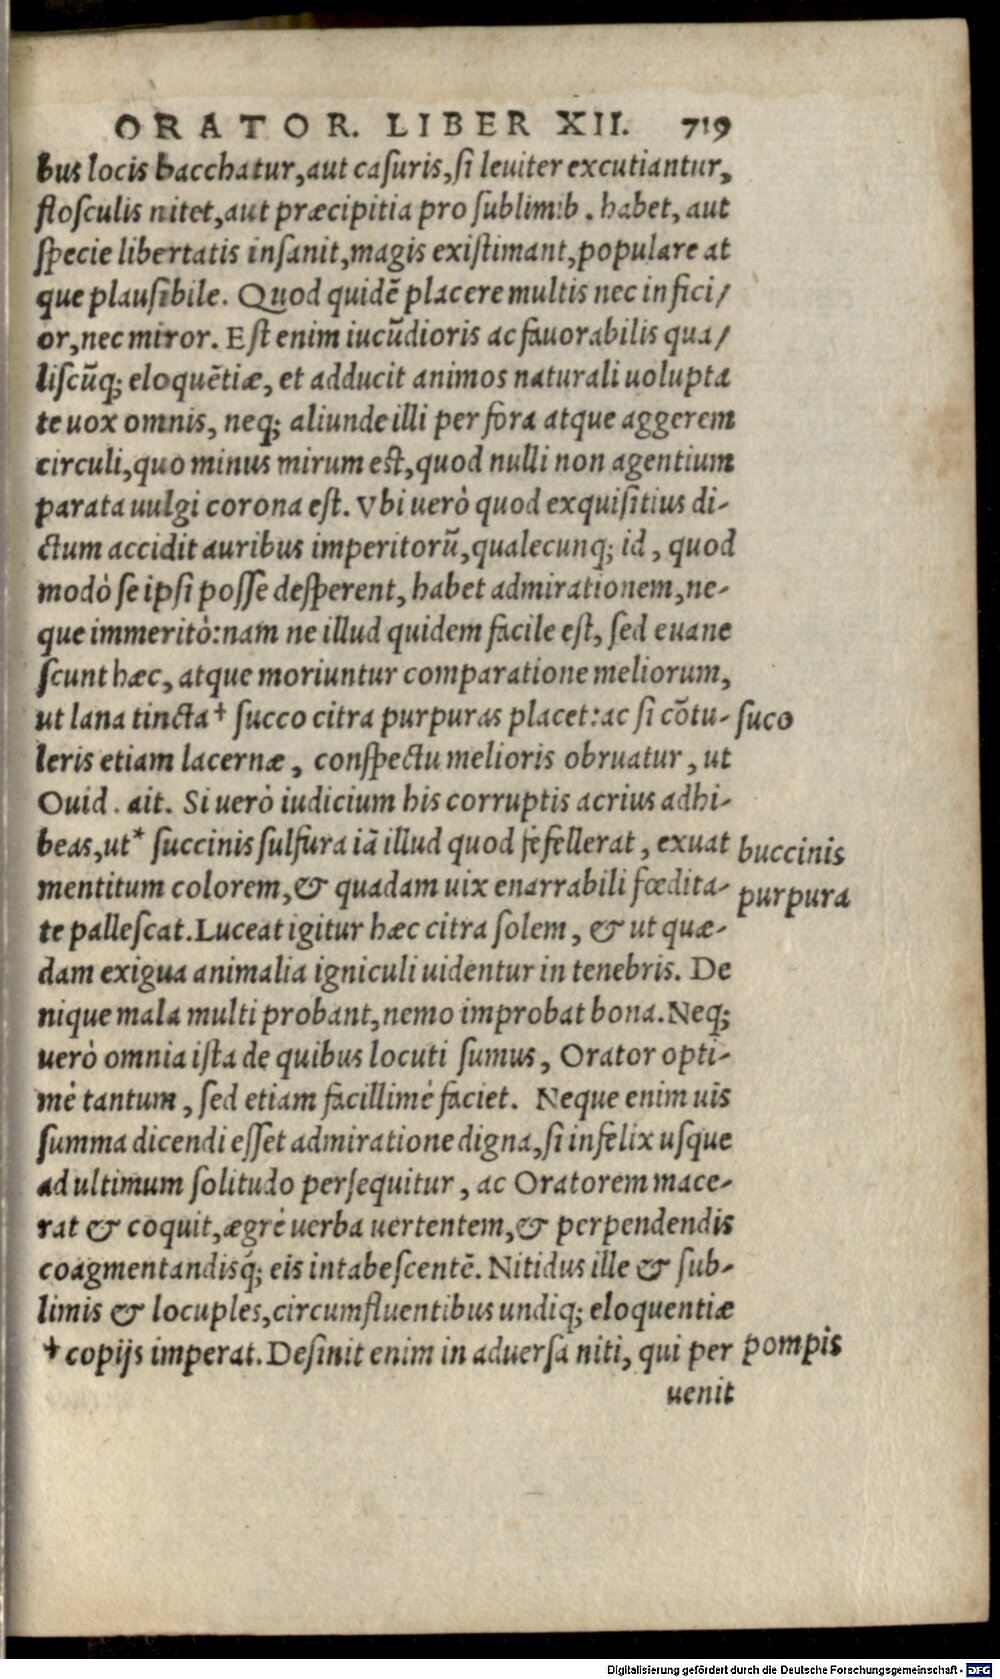 ORATOR. LIBER XII. 719
bus locis bacchatur, aut casuris, si leuiter excutiantur,
flosculis nitet, aut præcipitia pro sublimib. habet, aut
specie libertatis insanit, magis existimant, populare at
que plausibile. Quod quidē placere multis nec infici/
or, nec miror. Est enim iucūdioris ac fauorabilis qua/
liscūq; eloquētiæ, et adducit animos naturali uolupta
te uox omnis, neq; aliunde illi per fora atque aggerem
circuli, quo minus mirum est, quod nulli non agentium
parata uulgi corona est. Vbi uerò quod exquisitius di-
ctum accidit auribus imperitorū, qualecunq; id, quod
modò se ipsi posse desperent, habet admirationem, ne-
que immeritò: nam ne illud quidem facile est, sed euane
scunt hæc, atque moriuntur comparatione meliorum,
ut lana tincta † succo citra purpuras placet: ac si cōtu- suco
leris etiam lacernæ, conspectu melioris obruatur, ut
Ouid. ait. Si uerò iudicium his corruptis acrius adhi-
beas, ut * succinis sulfura iā illud quod fefellerat, exuat buccinis
mentitum colorem, & quadam uix enarrabili fœdita- purpura
te pallescat. Luceat igitur hæc citra solem, & ut quæ-
dam exigua animalia igniculi uidentur in tenebris. De
nique mala multi probant, nemo improbat bona. Neq;
uerò omnia ista de quibus locuti sumus, Orator opti-
mè tantum, sed etiam facillimè faciet. Neque enim uis
summa dicendi esset admiratione digna, si infelix usque
ad ultimum solitudo persequitur, ac Oratorem mace-
rat & coquit, ægrè uerba uertentem, & perpendendis
coagmentandisq́; eis intabescentē. Nitidus ille & sub-
limis & locuples, circumfluentibus undiq; eloquentiæ
† copijs imperat. Desinit enim in aduersa niti, qui per pompis
uenit
Digitalisierung gefördert durch die Deutsche Forschungsgemeinschaft - DFG